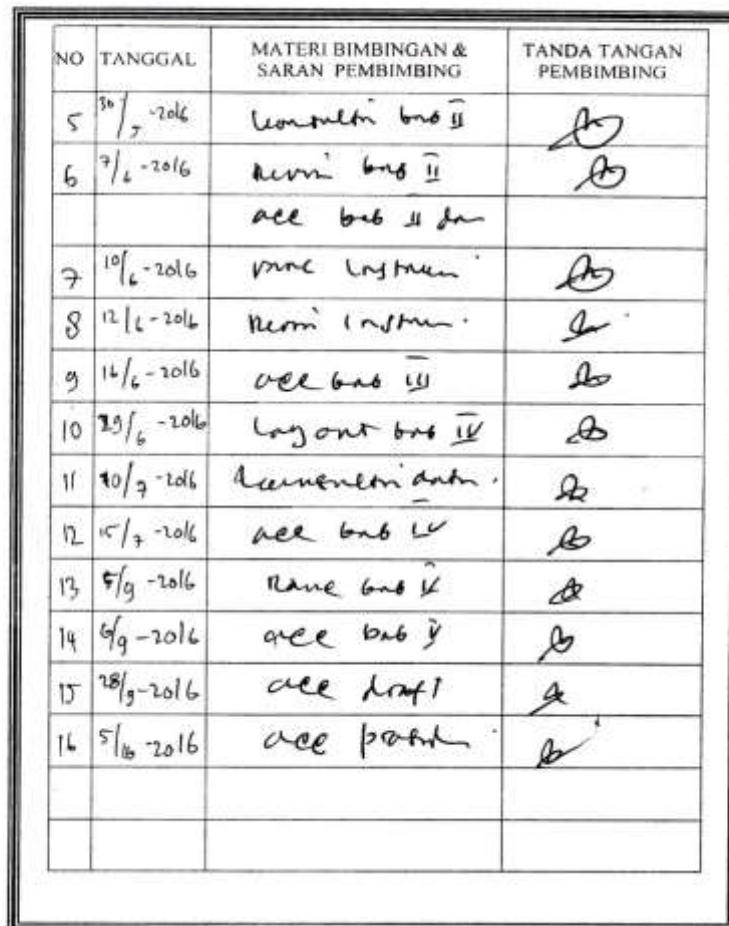 NO TANGGAL MATERI BIMBINGAN & SARAN PEMBIMBING TANDA TANGAN PEMBIMBING
5 30/5 -2016 bab II
6 7/6 -2016 bab II
acc bab II dan
7 10/6 -2016
8 12/6 -2016
9 16/6 -2016 acc bab III
10 29/6 -2016 Lay out bab IV
11 10/7 -2016
12 15/7 -2016 acc bab IV
13 5/9 -2016 bab V
14 6/9 -2016 acc bab V
15 28/9-2016 acc draft
16 5/10 -2016 acc